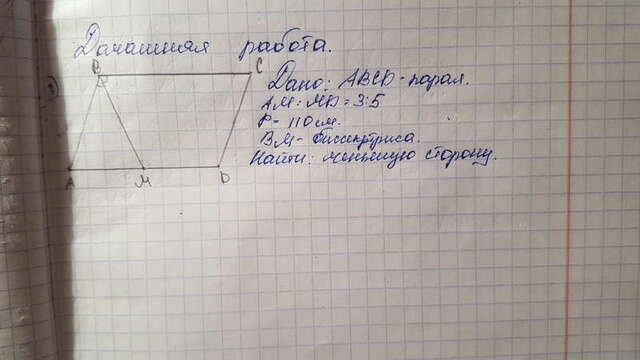 Домашняя работа.
1)
B
C
Дано: ABCD - парал.
AM : MD = 3:5
P = 110 см.
BM - биссектриса.
Найти: меньшую сторону.
A
M
D